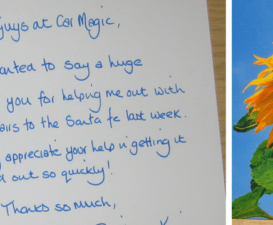 guys at Car Magic,
anted to say a huge
you for helping me out with
airs to the Santa fe last week.
appreciate your help in getting it
out so quickly!
Thanks so much,